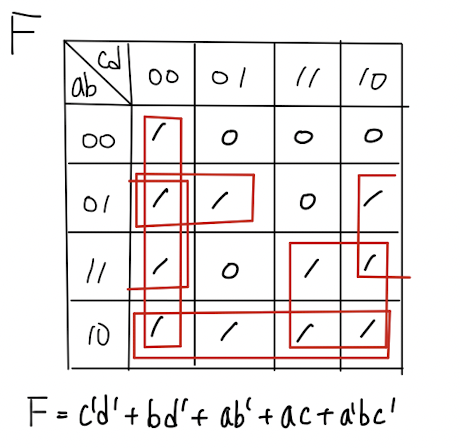 F
cd
ab 00 01 11 10
00 1 0 0 0
01 1 1 0 1
11 1 0 1 1
10 1 1 1 1
F = c'd' + bd' + ab' + ac + a'bc'